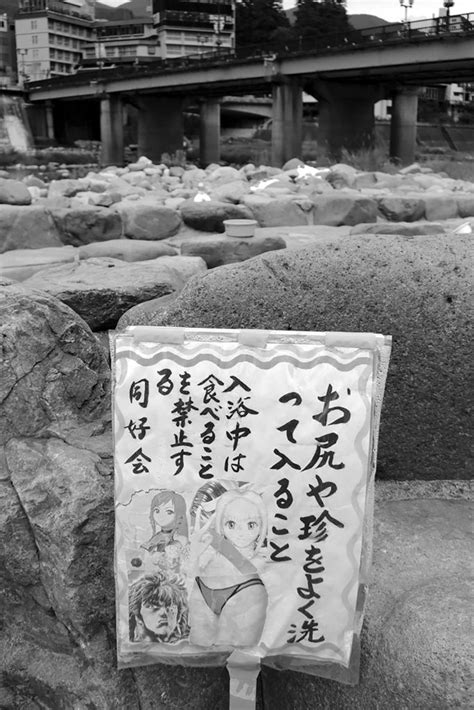 お尻や珍をよく洗
って入ること
入浴中は
食べること
を禁止す
る
同好会